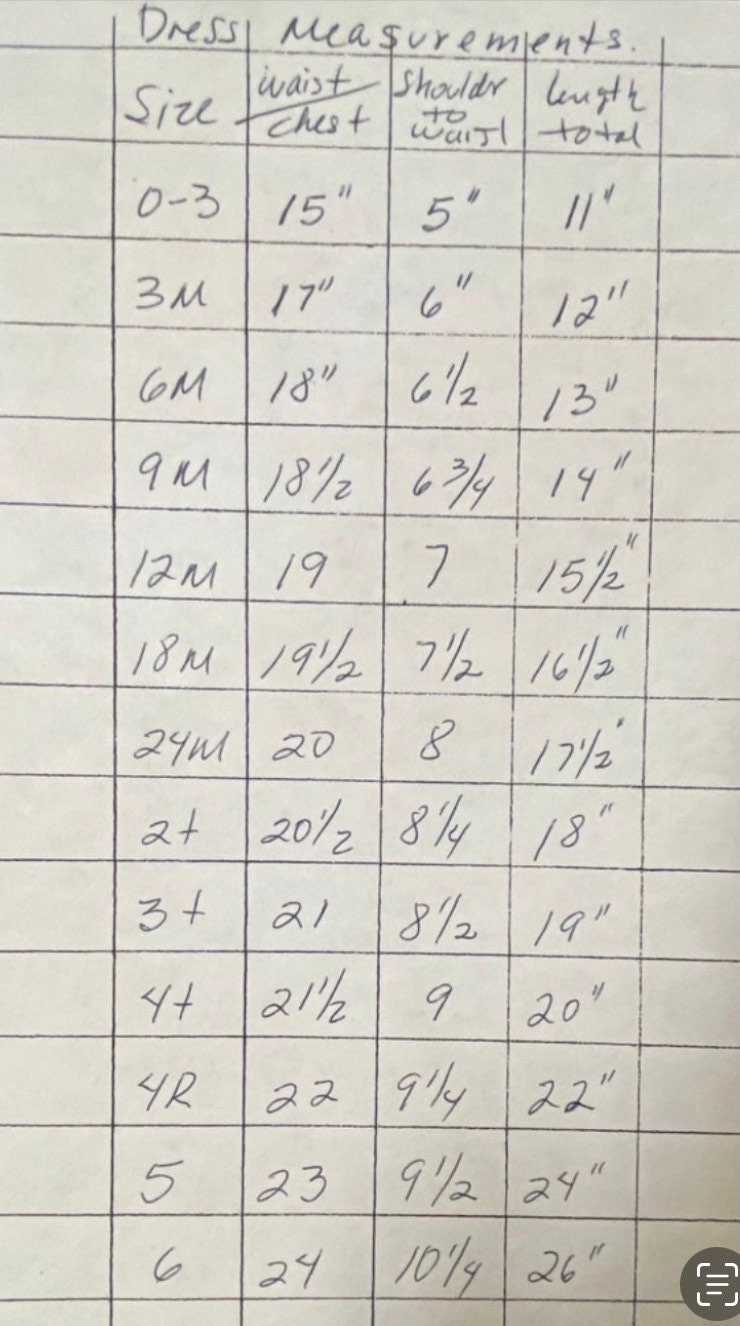 Dress Measurements.
Size waist/chest Shouldr to waist length total
0-3 15" 5" 11"
3M 17" 6" 12"
6M 18" 6 1/2 13"
9M 18 1/2 6 3/4 14"
12M 19 7 15 1/2"
18M 19 1/2 7 1/2 16 1/2"
24M 20 8 17 1/2'
2t 20 1/2 8 1/4 18"
3t 21 8 1/2 19"
4t 21 1/2 9 20"
4R 22 9 1/4 22"
5 23 9 1/2 24"
6 24 10 1/4 26"